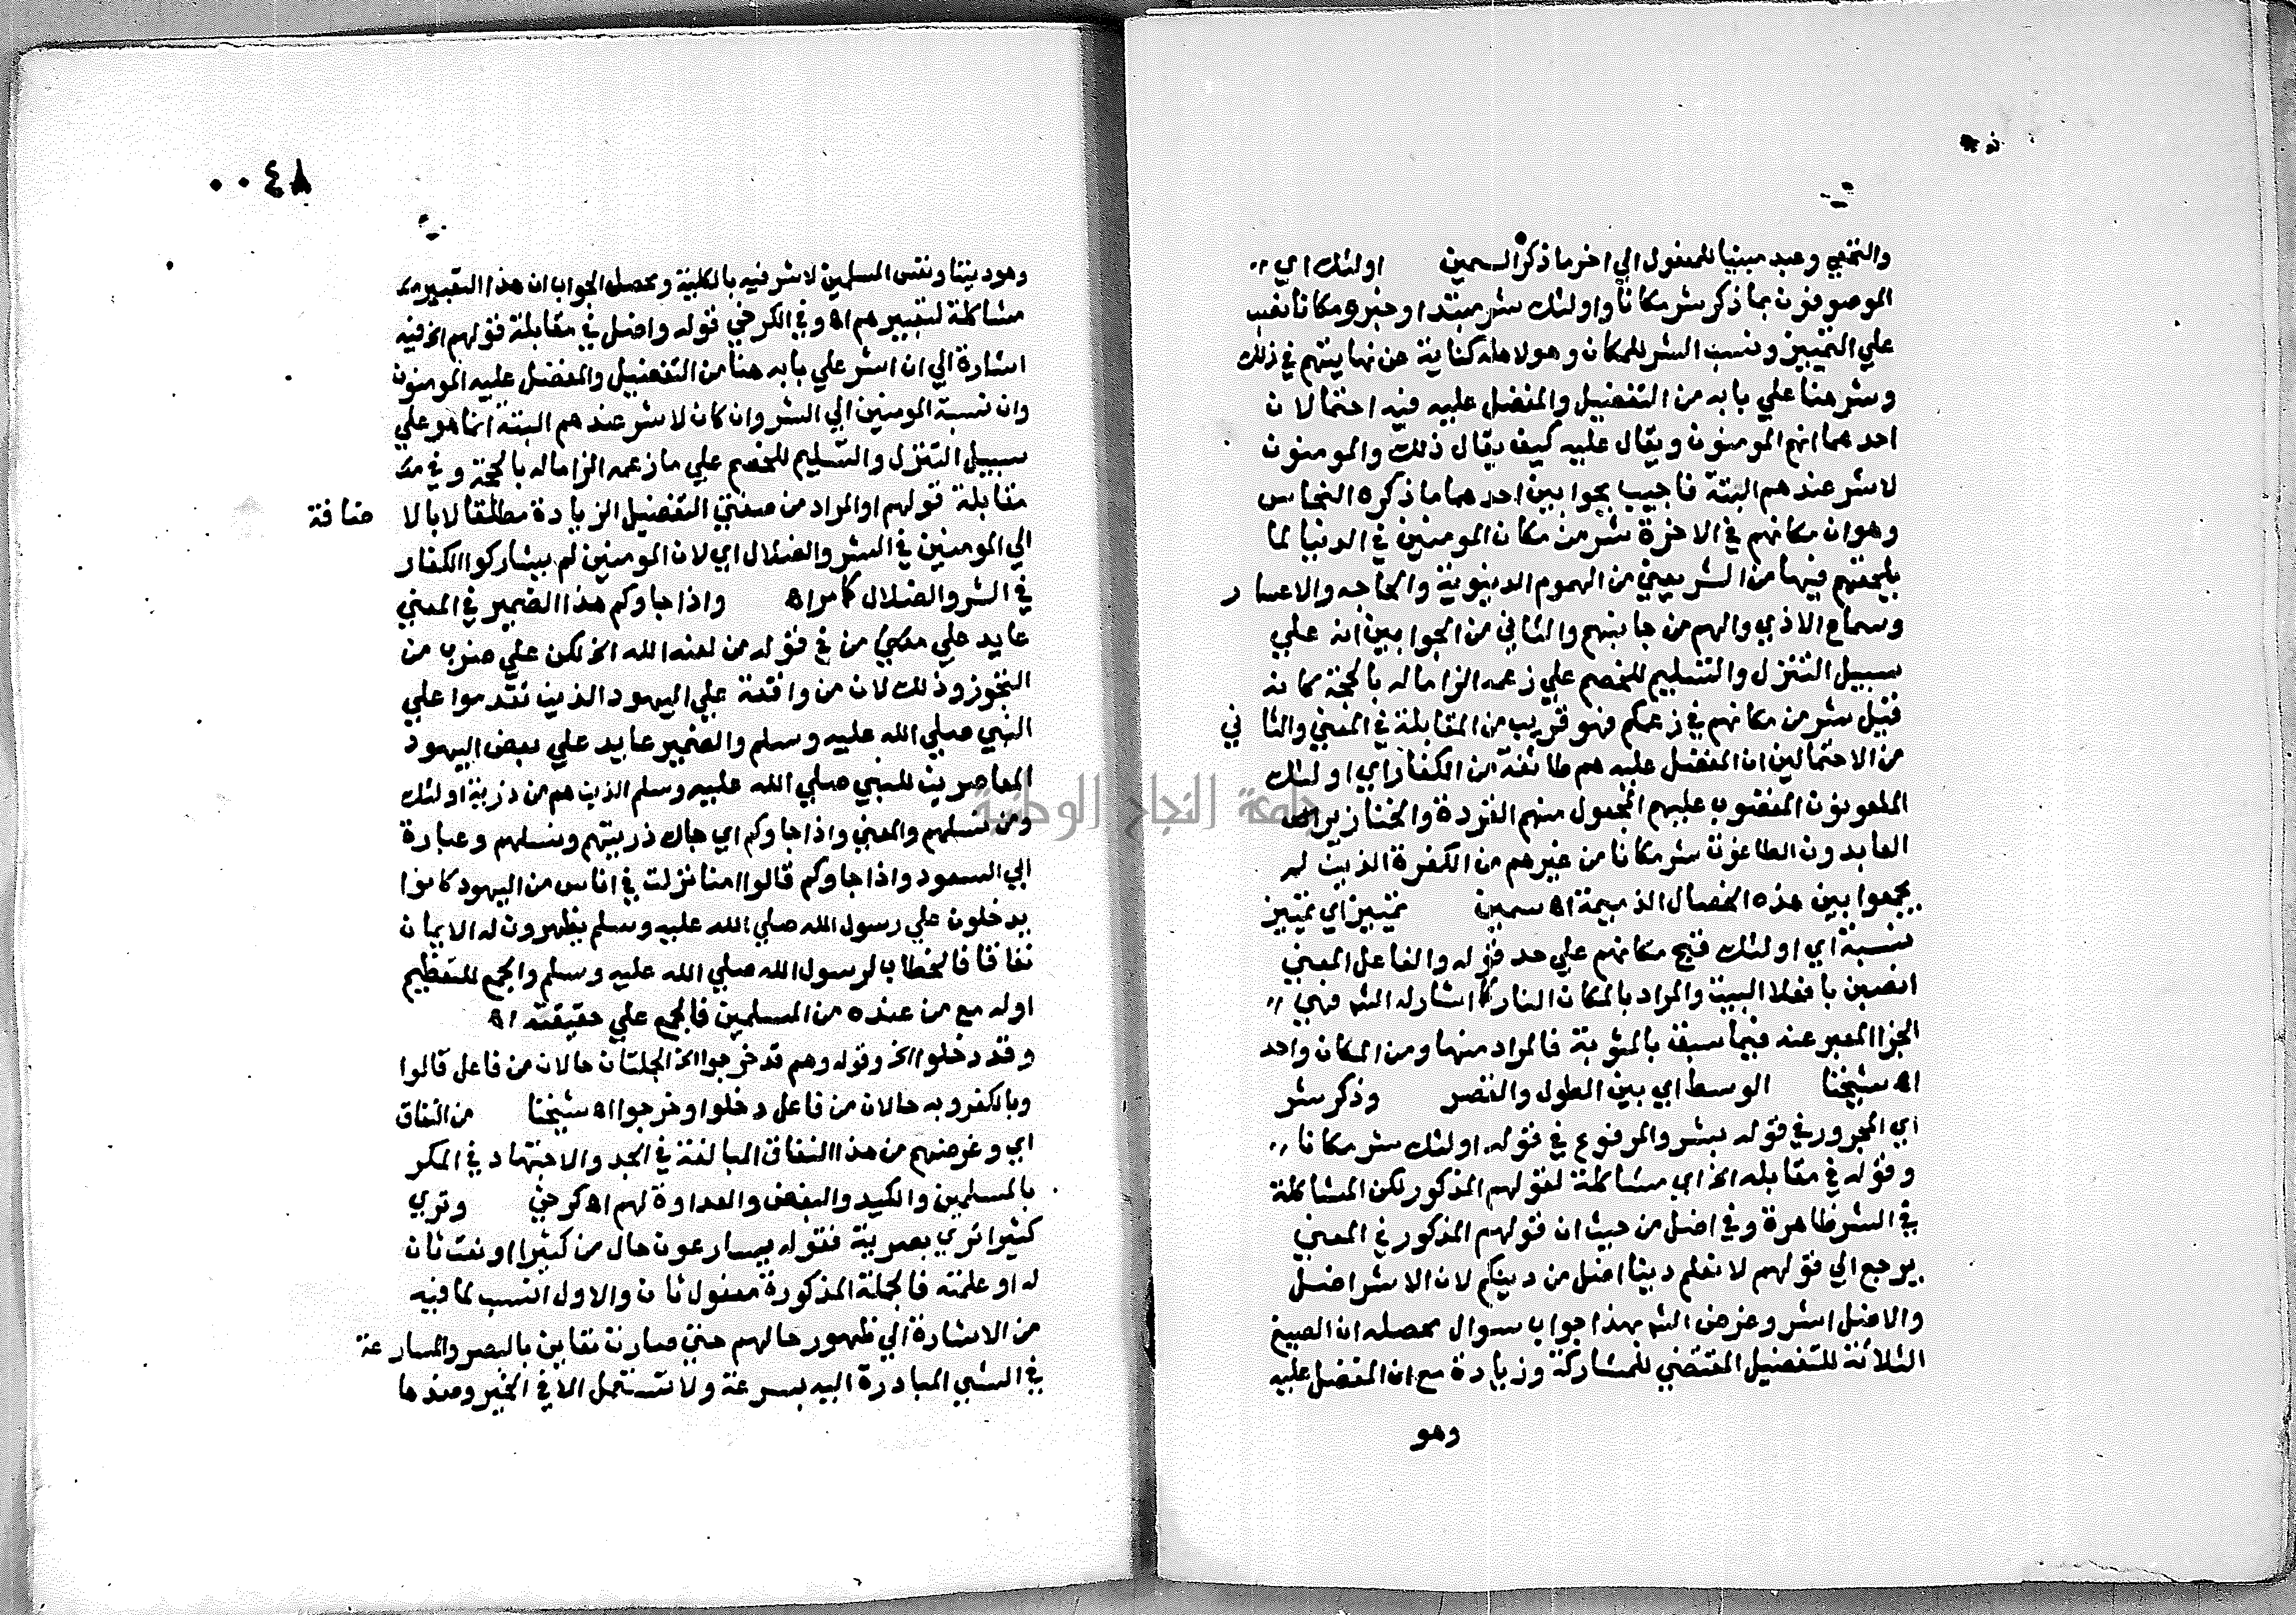 والنخعي وعبد مبنيا للمفعول الي اخر ما ذكره السمين اولئك اي
الموصوفون بما ذكر شر مكانا واولئك شر مبتدا وخبر ومكانا نصب
علي التمييز ونسب الشر للمكان وهو لاهله كناية عن نهايتهم في ذلك
وشر هنا علي بابه من التفضيل والمفضل عليه فيه احتمالان
احدهما انهم المومنون ويقال عليه كيف يقال ذلك والمومنون
لا شر عندهم البتة فاجيب بجوابين احدهما ما ذكره النحاس
وهو ان مكانهم في الاخرة شر من مكان المومنين في الدنيا لما
يلحقهم فيها من الشر يعني من الهموم الدنيوية والحاجه والاعسار
وسماع الاذي والهم من جانبهم والثاني من الجوابين انه علي
سبيل التنزل والتسليم للخصم علي زعمه الزاما له بالحجة كانه
قيل شر من مكانهم في زعمكم فهو قريب من المقابلة في المعني والثاني
من الاحتمالين ان المفضل عليه هم طائفة من الكفار اي اولئك
الملعونون المغضوب عليهم المجعول منهم القردة والخنازير
العابدون الطاغوت شر مكانا من غيرهم من الكفرة الذين لم
يجمعوا بين هذه الخصال الذميمة اه سمين تمييز اي تمييز
نسبة اي اولئك قبح مكانهم علي حد قوله والفاعل المعني
انصبن بافعلا البيت والمراد بالمكان النار كما اشار له الشم فهي
الجزا المعبر عنه فيما سبق بالمثوبة فالمراد منها ومن المكان واحد
اه شيخنا الوسط اي بين الطول والقصر وذكر شر
اي المجرور في قوله بشر والمرفوع في قوله اولئك شر مكانا
وقوله في مقابله الخ اي مشاكلة لقولهم المذكور لكن المشاكلة
في الشر ظاهرة وفي اضل من حيث ان قولهم المذكور في المعني
يرجع الي قولهم لا نعلم دينا اضل من دينكم لان الاشر اضل
والاضل اشر وغرض الشم بهذا جواب سوال محصله ان الصيغ
الثلاثة للتفضيل المقتضي للمشاركة وزيادة مع ان المفضل عليه
وهو
٠٠٤٨
وهو ديننا ونفس المسلمين لا شر فيه بالكلية ومحصل الجواب ان هذا التعبير
مشاكلة لتعبيرهم اه وفي الكرخي قوله واضل في مقابلة قولهم الخ فيه
اشارة الي ان اشر علي بابه هنا من التفضيل والمفضل عليه المومنون
وان نسبة المومنين الي الشر وان كان لا شر عندهم البتة انما هو علي
سبيل التنزل والتسليم للخصم علي ما زعمه الزاما له بالحجة وفي
مقابلة قولهم او المراد من صفتي التفضيل الزيادة مطلقا لا بالاضافة
الي المومنين في الشر والضلال اي لان المومنين لم يشاركوا الكفار
في الشر والضلال كما مر اه واذا جاوكم هذا الضمير في المعني
عايد علي معني من في قوله من لعنه الله الخ لكن علي ضرب من
التجوز وذلك لان من واقعة علي اليهود الذين تقدموا علي
النبي صلي الله عليه وسلم والضمير عايد علي بعض اليهود
المعاصرين للنبي صلي الله عليه وسلم الذين هم من ذرية اولئك
ومن نسلهم والمعني واذا جاوكم اي جاك ذريتهم ونسلهم وعبارة
ابي السعود واذا جاوكم قالوا امنا نزلت في اناس من اليهود كانوا
يدخلون علي رسول الله صلي الله عليه وسلم يظهرون له الايمان
نفاقا فالخطاب لرسول الله صلي الله عليه وسلم والجمع للتعظيم
او له مع من عنده من المسلمين فالجمع علي حقيقته اه
وقد دخلوا الخ وقوله وهم قد خرجوا الخ الجملتان حالان من فاعل قالوا
وبالكفر وبه حالان من فاعل دخلوا وخرجوا اه شيخنا من النفاق
اي وغرضهم من هذا النفاق المبالغة في الجد والاجتهاد في المكر
بالمسلمين والكيد والبغض والعداوة لهم اه كرخي وتري
كثيرا تري بصرية فقوله يسارعون حال من كثيرا او نعت ثان
له او علمية فالجملة المذكورة مفعول ثان والاول انسب لما فيه
من الاشارة الي ظهور حالهم حتي صارت تعاين بالبصر والمسارعة
في الشي المبادرة اليه بسرعة ولا تستعمل الا في الخير وضدها
جامعة النجاح الوطنية